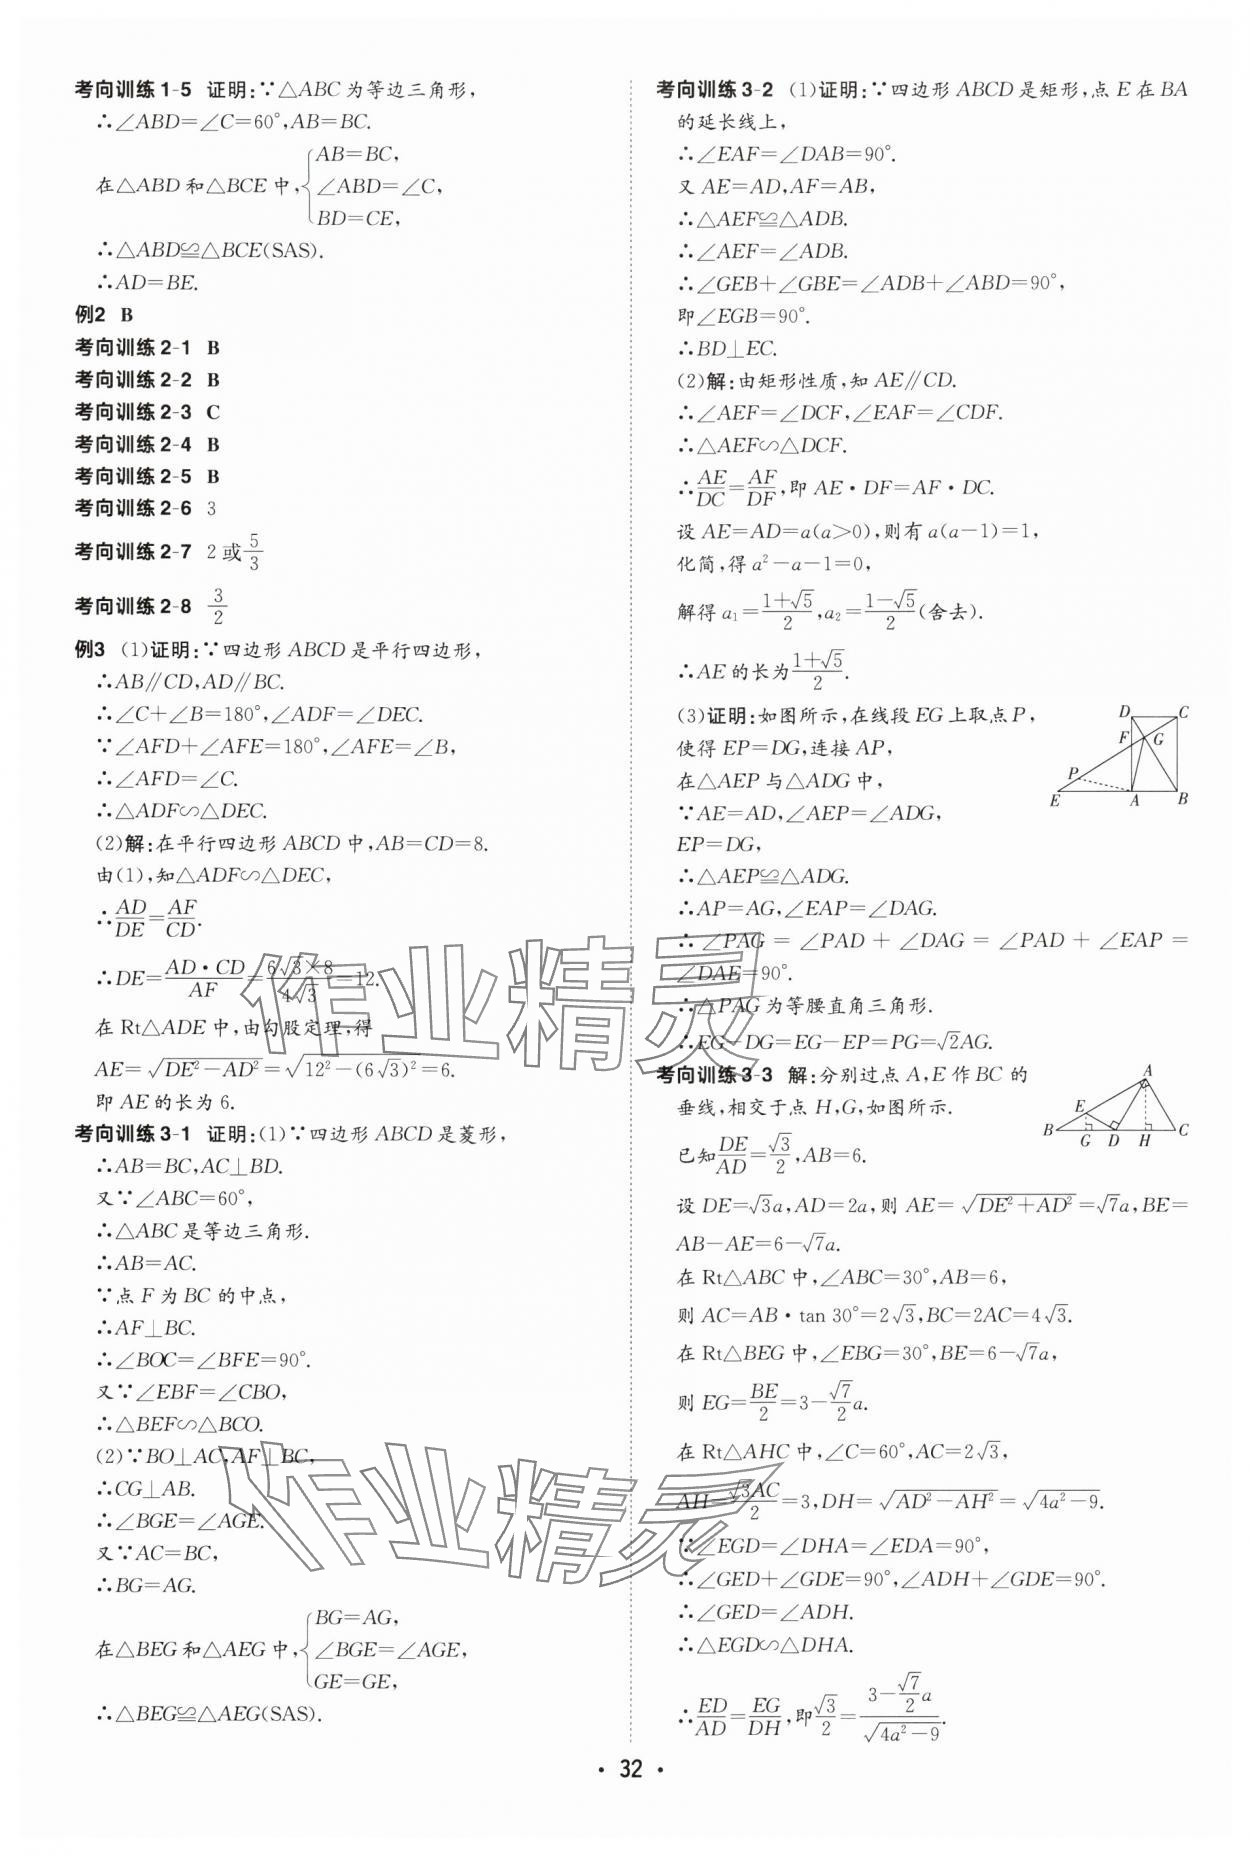 考向训练1-5 证明:∵△ABC为等边三角形,
∴∠ABD=∠C=60°,AB=BC.
在△ABD和△BCE中,{AB=BC,
∠ABD=∠C,
BD=CE,
∴△ABD≌△BCE(SAS).
∴AD=BE.
例2 B
考向训练2-1 B
考向训练2-2 B
考向训练2-3 C
考向训练2-4 B
考向训练2-5 B
考向训练2-6 3
考向训练2-7 2或5/3
考向训练2-8 3/2
例3 (1)证明:∵四边形ABCD是平行四边形,
∴AB∥CD,AD∥BC.
∴∠C+∠B=180°,∠ADF=∠DEC.
∵∠AFD+∠AFE=180°,∠AFE=∠B,
∴∠AFD=∠C.
∴△ADF∽△DEC.
(2)解:在平行四边形ABCD中,AB=CD=8.
由(1),知△ADF∽△DEC,
∴AD/DE=AF/CD.
∴DE=AD·CD/AF=6√3×8/4√3=12.
在Rt△ADE中,由勾股定理,得
AE=√(DE²-AD²)=√(12²-(6√3)²)=6.
即AE的长为6.
考向训练3-1 证明:(1)∵四边形ABCD是菱形,
∴AB=BC,AC⊥BD.
又∵∠ABC=60°,
∴△ABC是等边三角形.
∴AB=AC.
∵点F为BC的中点,
∴AF⊥BC.
∴∠BOC=∠BFE=90°.
又∵∠EBF=∠CBO,
∴△BEF∽△BCO.
(2)∵BO⊥AC,AF⊥BC,
∴CG⊥AB.
∴∠BGE=∠AGE.
又∵AC=BC,
∴BG=AG.
在△BEG和△AEG中,{BG=AG,
∠BGE=∠AGE,
GE=GE,
∴△BEG≌△AEG(SAS).
考向训练3-2 (1)证明:∵四边形ABCD是矩形,点E在BA
的延长线上,
∴∠EAF=∠DAB=90°.
又AE=AD,AF=AB,
∴△AEF≌△ADB.
∴∠AEF=∠ADB.
∴∠GEB+∠GBE=∠ADB+∠ABD=90°,
即∠EGB=90°.
∴BD⊥EC.
(2)解:由矩形性质,知AE∥CD.
∴∠AEF=∠DCF,∠EAF=∠CDF.
∴△AEF∽△DCF.
∴AE/DC=AF/DF,即AE·DF=AF·DC.
设AE=AD=a(a>0),则有a(a-1)=1,
化简,得a²-a-1=0,
解得a₁=(1+√5)/2,a₂=(1-√5)/2(舍去).
∴AE的长为(1+√5)/2.
(3)证明:如图所示,在线段EG上取点P,
使得EP=DG,连接AP,
在△AEP与△ADG中,
∵AE=AD,∠AEP=∠ADG,
EP=DG,
∴△AEP≌△ADG.
∴AP=AG,∠EAP=∠DAG.
∴∠PAG=∠PAD+∠DAG=∠PAD+∠EAP=
∠DAE=90°.
∴△PAG为等腰直角三角形.
∴EG-DG=EG-EP=PG=√2AG.
D C
F G
P
E A B
考向训练3-3 解:分别过点A,E作BC的
垂线,相交于点H,G,如图所示.
A
E
B G D H C
已知DE/AD=√3/2,AB=6.
设DE=√3a,AD=2a,则AE=√(DE²+AD²)=√7a,BE=
AB-AE=6-√7a.
在Rt△ABC中,∠ABC=30°,AB=6,
则AC=AB·tan 30°=2√3,BC=2AC=4√3.
在Rt△BEG中,∠EBG=30°,BE=6-√7a,
则EG=BE/2=3-√7/2a.
在Rt△AHC中,∠C=60°,AC=2√3,
AH=√3AC/2=3,DH=√(AD²-AH²)=√(4a²-9).
∵∠EGD=∠DHA=∠EDA=90°,
∴∠GED+∠GDE=90°,∠ADH+∠GDE=90°.
∴∠GED=∠ADH.
∴△EGD∽△DHA.
∴ED/AD=EG/DH,即√3/2=(3-√7/2a)/√(4a²-9).
·32·
作业精灵
作业精灵